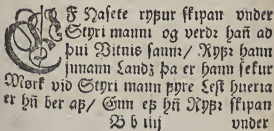 EF Nasete ryfur skipan vnder
Styri manni og verdr hañ ad
þui Vitnis sannr/ Ryfz hann
jnnann Landz þa er hann sekur
Mørk vid Styri mann fyre Lest hueria
er hñ ber aß/ Enn eff hñ Ryfz skipan
B b iiij vnder